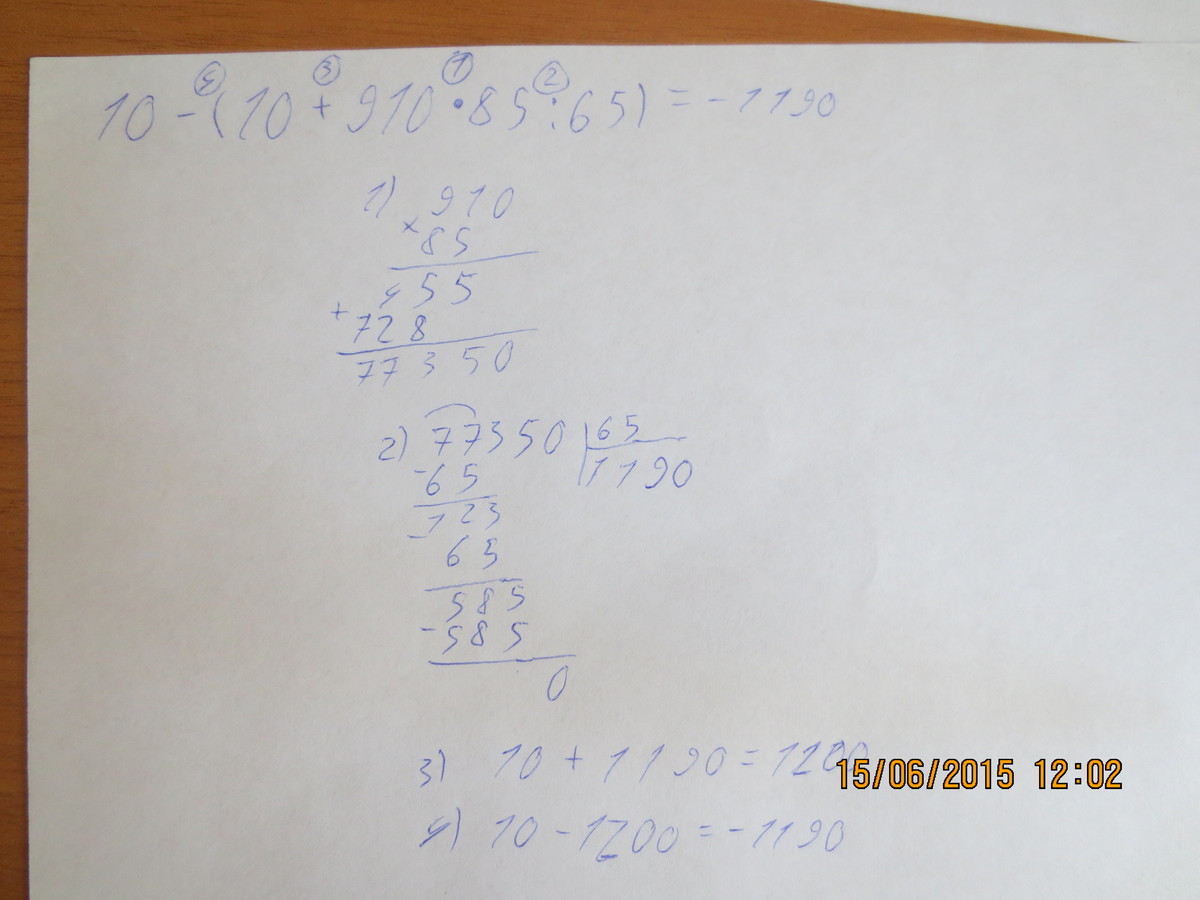 ④ ③ ① ②
10 - (10 + 910 • 85 : 65) = -1190
1) 910
× 85
455
+ 728
77350
2) 77350 | 65
- 65 1190
123
- 65
585
- 585
0
3) 10 + 1190 = 1200
15/06/2015 12:02
4) 10 - 1200 = -1190